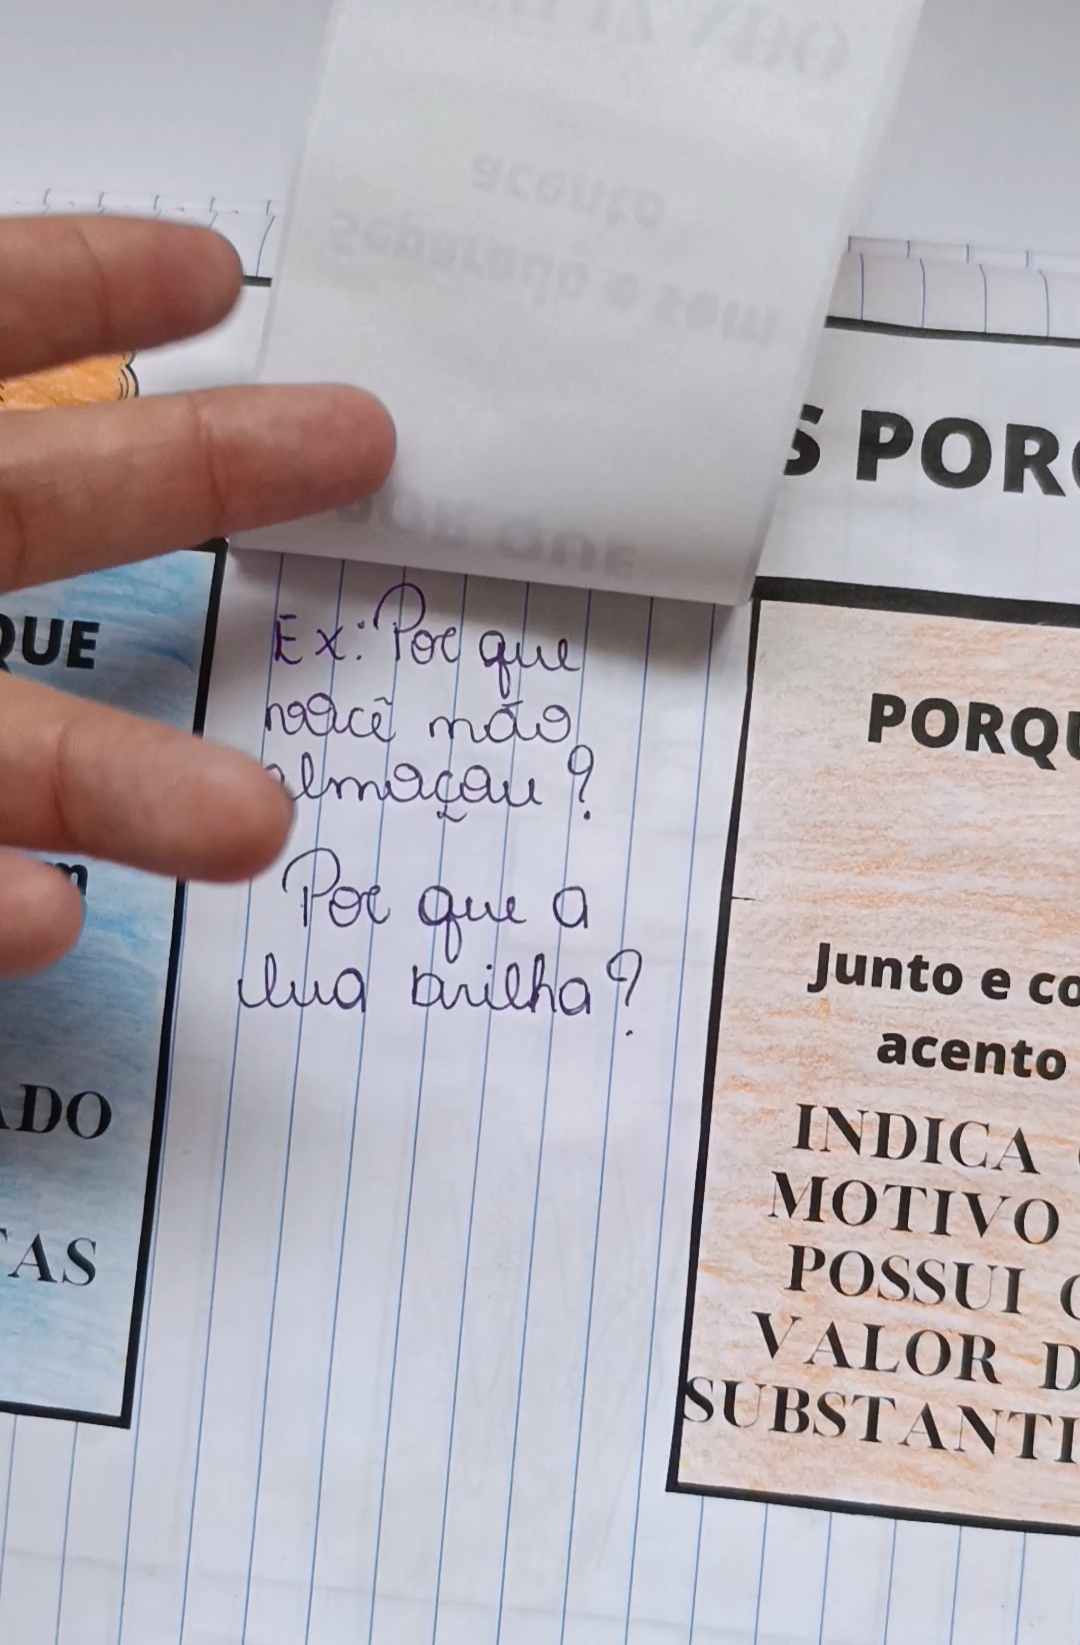 S PORQ
QUE
Ex: Por que
você não
almoçou?
Por que a
lua brilha?
ADO
TAS
PORQU
Junto e co
acento
INDICA
MOTIVO
POSSUI
VALOR D
SUBSTANTI
acento
separado e sem
POR QUE